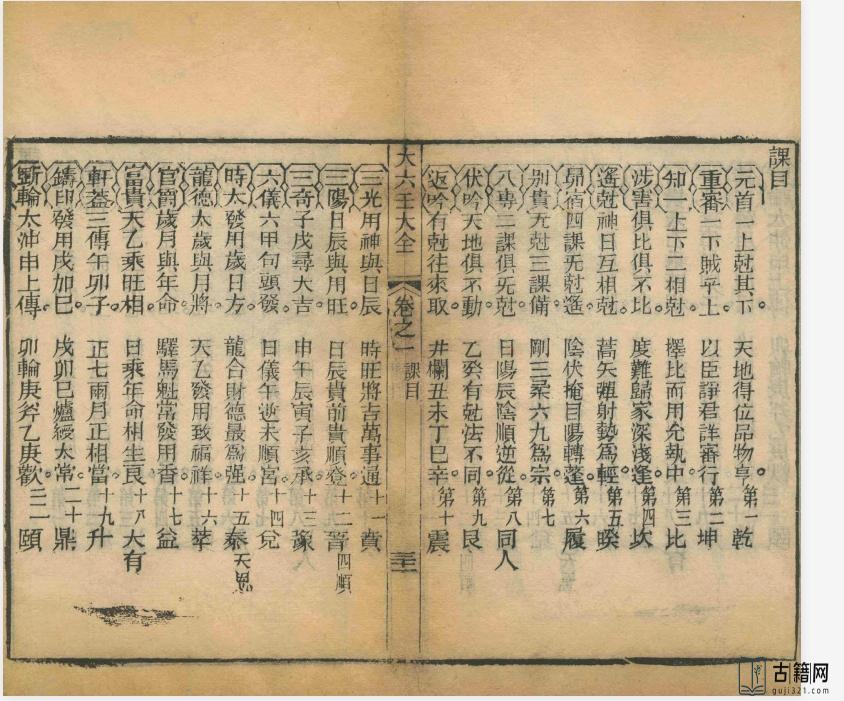 課目
元首一上尅其下 天地得位品物亨 第一 乾
重審一下賊乎上 以臣諍君詳審行 第二 坤
知一上下二相尅 擇比而用允執中 第三 比
涉害俱比俱不比 度難歸家深淺逢 第四 坎
遙尅神日互相尅 蒿矢彈射勢爲輕 第五 睽
昴宿四課无尅遙 陰伏掩目陽轉蓬 第六 履
別責无尅三課備 剛三柔六九爲宗 第七
八專二課俱无尅 日陽辰陰順逆從 第八 同人
伏吟天地俱不動 乙癸有尅法不同 第九 艮
返吟有尅往來取 井欄丑未丁巳辛 第十 震
大六壬大全 卷之一 課目
三光用神與日辰 時旺將吉萬事通 十一 賁
三陽日辰與用旺 日辰貴前貴順登 十二 晉
三奇子戌尋大吉 申午辰寅子亥承 十三 豫
六儀六甲旬頭發 日儀午逆未順宮 十四 兌
時太發用歲日方 龍合財德最爲强 十五 泰
龍德太歲與月將 天乙發用致福祥 十六 萃
官爵歲月與年命 驛馬魁常發用香 十七 益
富貴天乙乘旺相 日乘年命相生良 十八 大有
軒蓋三傳午卯子 正七兩月正相當 十九 升
鑄印發用戌加巳 戌卯巳爐綬太常 二十 鼎
斲輪太沖申上傳 卯輪庚斧乙庚歡 二一 頤
古籍网
guji321.com